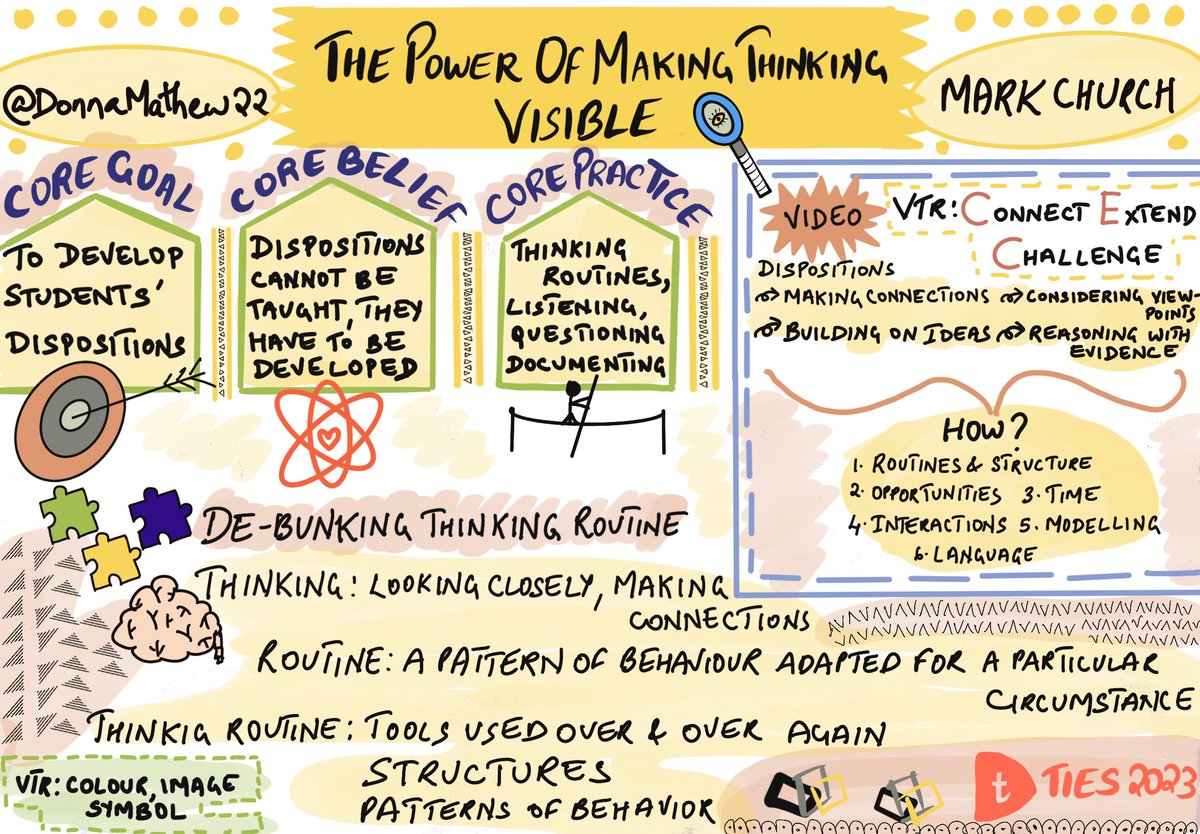 @DonnaMathew22
THE POWER OF MAKING THINKING
VISIBLE
MARK CHURCH
CORE GOAL
TO DEVELOP
STUDENTS'
DISPOSITIONS
CORE BELIEF
DISPOSITIONS
CANNOT BE
TAUGHT, THEY
HAVE TO BE
DEVELOPED
CORE PRACTICE
THINKING
ROUTINES,
LISTENING,
QUESTIONING
DOCUMENTING
VIDEO
VTR: CONNECT EXTEND
CHALLENGE
DISPOSITIONS
MAKING CONNECTIONS CONSIDERING VIEW-
POINTS
BUILDING ON IDEAS REASONING WITH
EVIDENCE
HOW?
1. ROUTINES & STRUCTURE
2. OPPORTUNITIES 3. TIME
4. INTERACTIONS 5. MODELLING
6. LANGUAGE
DE-BUNKING THINKING ROUTINE
THINKING: LOOKING CLOSELY, MAKING
CONNECTIONS
ROUTINE: A PATTERN OF BEHAVIOUR ADAPTED FOR A PARTICULAR
CIRCUMSTANCE
THINKIG ROUTINE: TOOLS USED OVER & OVER AGAIN
STRUCTURES
PATTERNS OF BEHAVIOR
VTR: COLOUR, IMAGE
SYMBOL
t TIES 2023